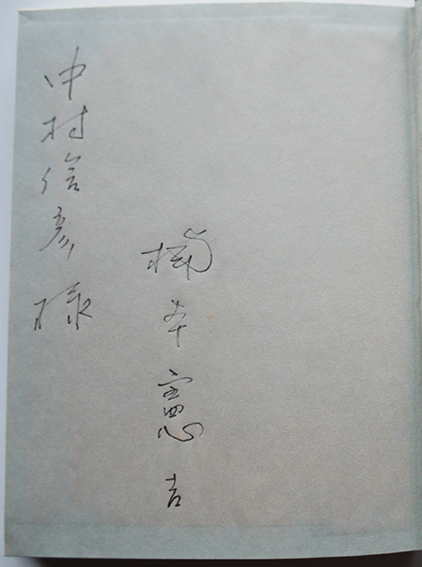 楠本憲吉
中村信彦様